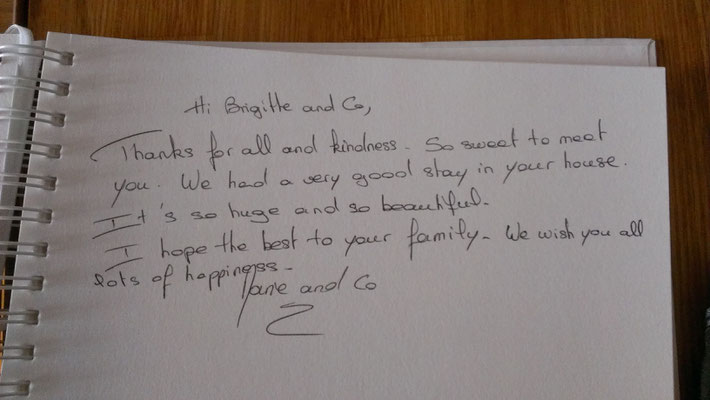 Hi Brigitte and Co,
Thanks for all and kindness. So sweet to meet
you. We had a very good stay in your house.
It's so huge and so beautiful.
I hope the best to your family. We wish you all
lots of happiness.
and Co